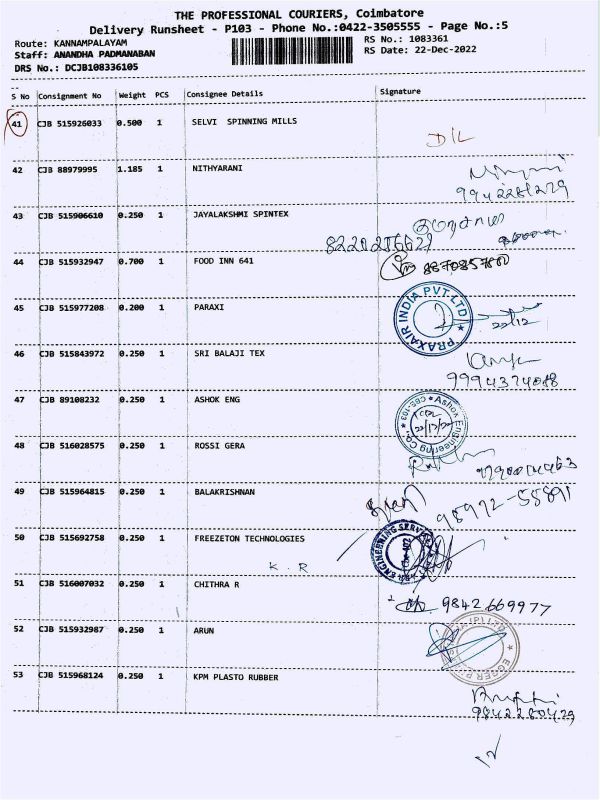 THE PROFESSIONAL COURIERS, Coimbatore
Delivery Runsheet - P103 - Phone No.:0422-3505555 - Page No.:5
Route: KANNAMPALAYAM
RS No.: 1083361
Staff: ANANDHA PADMANABAN
RS Date: 22-Dec-2022
DRS No.: DCJB108336105
S No Consignment No Weight PCS Consignee Details Signature
41 CJB 515926033 0.500 1 SELVI SPINNING MILLS
D/L
42 CJB 88979995 1.185 1 NITHYARANI
9942281279
43 CJB 515906610 0.250 1 JAYALAKSHMI SPINTEX
44 CJB 515932947 0.700 1 FOOD INN 641
45 CJB 515977208 0.200 1 PARAXI
PRAXAIR INDIA PVT-LTD
22/12
46 CJB 515843972 0.250 1 SRI BALAJI TEX
9994374088
47 CJB 89108232 0.250 1 ASHOK ENG
Ashok Engineering Co., CBE-103
22/12/22
48 CJB 516028575 0.250 1 ROSSI GERA
49 CJB 515964815 0.250 1 BALAKRISHNAN
98972-55891
50 CJB 515692758 0.250 1 FREEZETON TECHNOLOGIES
K.R
ENGINEERING SERV
51 CJB 516007032 0.250 1 CHITHRA R
9842669977
52 CJB 515932987 0.250 1 ARUN
53 CJB 515968124 0.250 1 KPM PLASTO RUBBER
9842280429